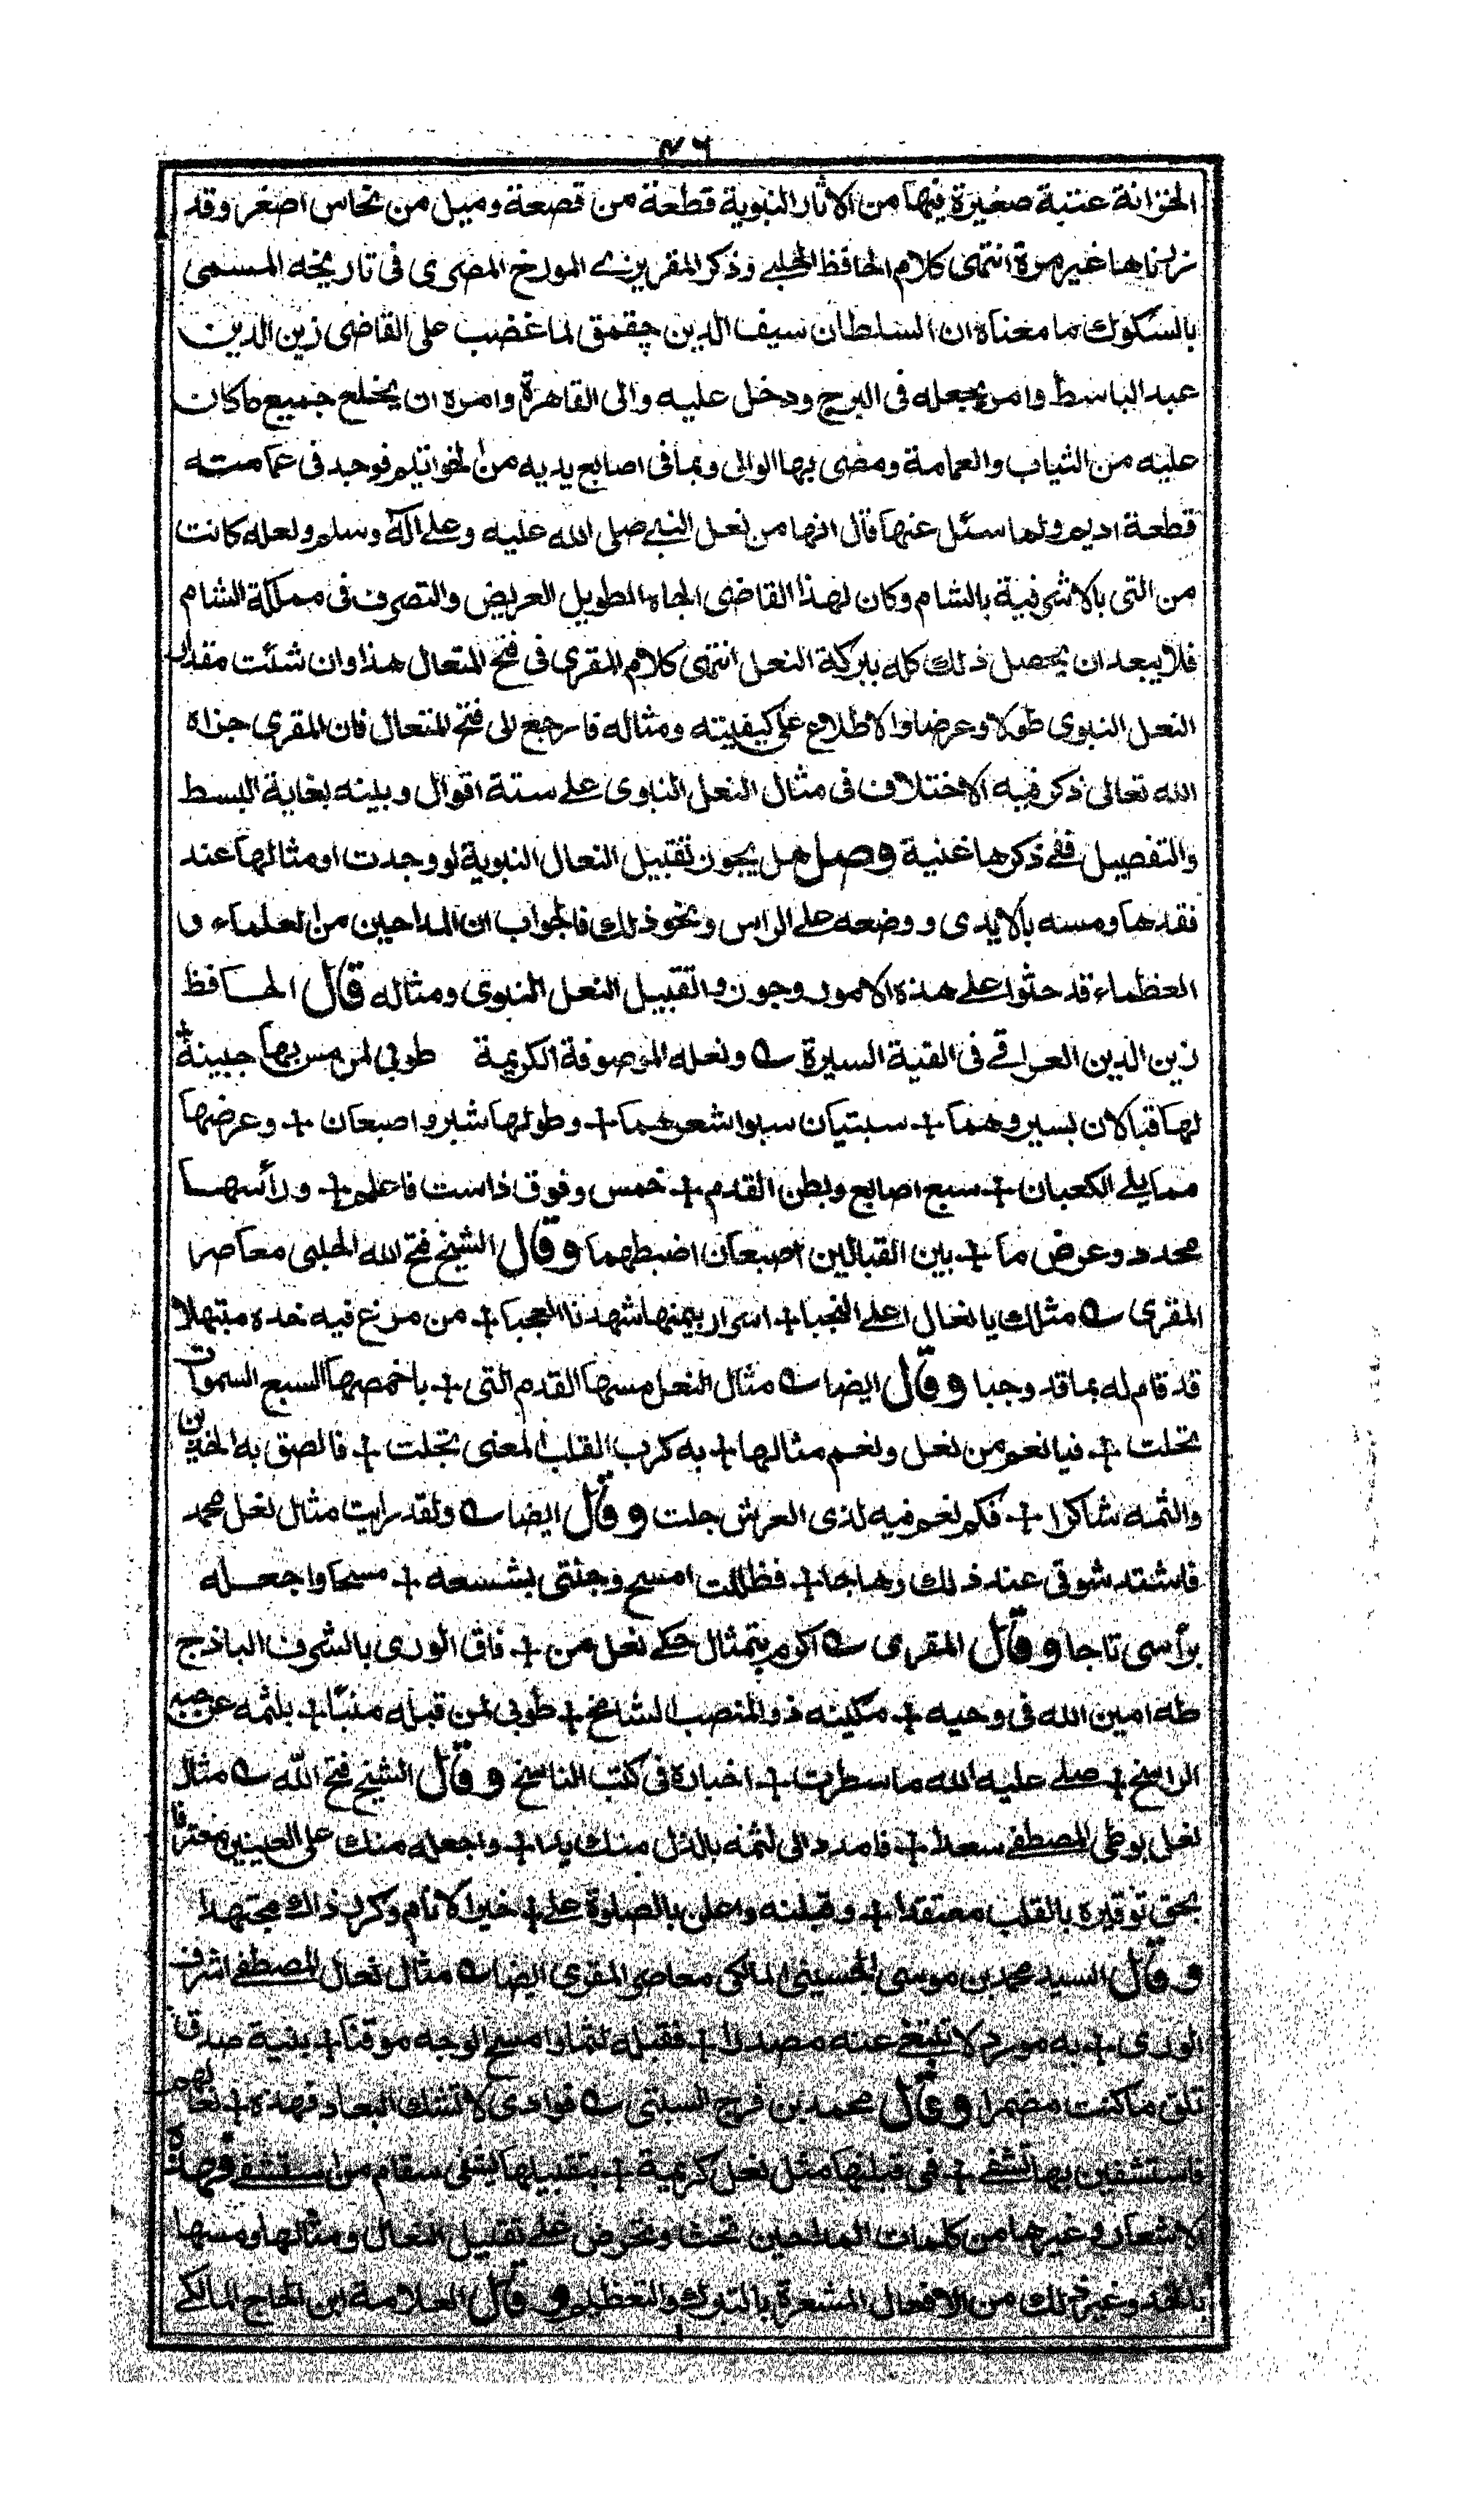 ٤٦
الخزانة عتبة صغيرة فيها من الاثار النبوية قطعة من قصعة وميل من نحاس اصفر وقد
زرناها غير مرة انتهى كلام الحافظ الحلبي وذكر المقريزى المورخ المصرى فى تاريخه المسمى
بالسكوك ما معناه ان السلطان سيف الدين چقمق لما غضب على القاضى زين الدين
عبد الباسط وامر بجعله فى البرج ودخل عليه والى القاهرة وامره ان يخلع جميع ما كان
عليه من الثياب والعمامة ومضى بها الوالى وبما فى اصابع يديه من الخواتيم فوجد فى عمامته
قطعة اديم ولما سئل عنها قال انها من نعل النبي صلى الله عليه وعلى آله وسلم ولعله كانت
من التى بالاشرفية بالشام وكان لهذا القاضى الجاه الطويل العريض والتصرف فى مملكة الشام
فلا يبعد ان يحصل ذلك كله ببركة النعل انتهى كلام المقرى فى فتح المتعال هذا وان شئت مقدار
النعل النبوى طولا وعرضا والاطلاع على كيفيته ومثاله فارجع الى فتح المتعال فان المقرى جزاه
الله تعالى ذكر فيه الاختلاف فى مثال النعل النبوى على ستة اقوال وبينه بغاية البسط
والتفصيل ففي ذكرها غنية وصل هل يجوز تقبيل النعال النبوية لو وجدت او مثالها عند
فقدها ومسه بالايدى ووضعه على الراس ونحو ذلك فالجواب ان المداحين من العلماء و
العظماء قد حثوا على هذه الامور وجوزوا تقبيل النعل النبوى ومثاله قال الحافظ
زين الدين العراقي فى الفية السيرة ے ونعله الموصوفة الكريمة طوبى لمن مس بها جبينه +
لها قبالان بسير وهما + سبتيتان سبتوا شعرهما + وطولها شبر واصبعان + وعرضها
مما يلى الكعبان + سبع اصابع وبطن القدم + خمس وفوق ذاست فاعلم + ورأسها
محدد وعرض ما + بين القبالين اصبعان اضبطهما وقال الشيخ فتح الله الحلبى معاصر
المقرى ے مثلك يا نعال اعلى النجبا + اسرار بيمنها شهدنا العجبا + من مرغ فيه خده مبتهلا
قد قام له بما قد وجبا وقال ايضا ے مثال النعل مسها القدم التى + باخمصها السبع السموات
تحلت + فيا نعم من نعل ونعم مثالها + به كرب القلب المعنى تجلت + فالصق به الخدين
والثمه شاكرا + فكم نعم فيه لذى العرش جلت وقال ايضا ے ولقد رايت مثال نعل محمد
فاشتد شوقى عند ذلك وهاجا + فظللت امسح وجنتى بشسعه + مسحا واجعله
برأسى تاجا وقال المقرى ے اكرم بتمثال حكى نعل من + فاق الورى بالشرف الباذج
طه امين الله فى وحيه + مكينه ذو المنصب الشامخ + طوبى لمن قبله منبئا + بلثمه عن حبه
الراسخ + صلى عليه الله ما سطرت + اخباره فى كتب الناسخ وقال الشيخ فتح الله ے مثال
نعل بوطى المصطفى سعدا + فامدد الى لثمه بالذل منك يدا + واجعله منك على العينين معترفا
بحق توقيره بالقلب معتقدا + وقبلنه واعلن بالصلوة على + خير الانام وكرر ذاك مجتهدا
وقال السيد محمد بن موسى الحسينى المالكى معاصر المقرى ايضا ے مثال نعال المصطفى اشرف
الورى + به مورد لا تبتغى عنه مصدرا + فقبله لثما وامسح الوجه موقنا + بنية صدق
تلق ما كنت مضمرا وقال محمد بن فرج السبتى ے فوادى لا تشك البعاد فهذه + نعالهم
فاستشفين بها تشفى + فمى قبلنها مثل نعل كريمة + بتقبيلها يشفى سقام من استشفى فهذه
الاشعار وغيرها من كلمات المداحين تحث وتحرض على تقبيل النعال ومثالها ومسها
بالخد وغير ذلك من الافعال المشعرة بالتبرك والتعظيم وقال العلامة ابن الحاج المالكى